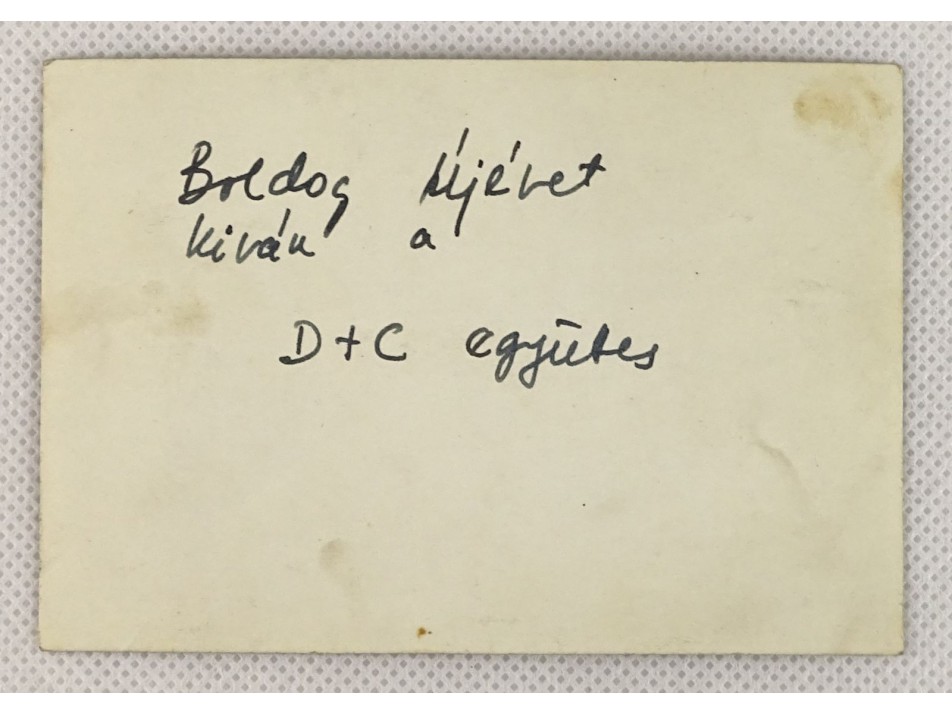 Boldog Újévet
kiván a
D+C együtes